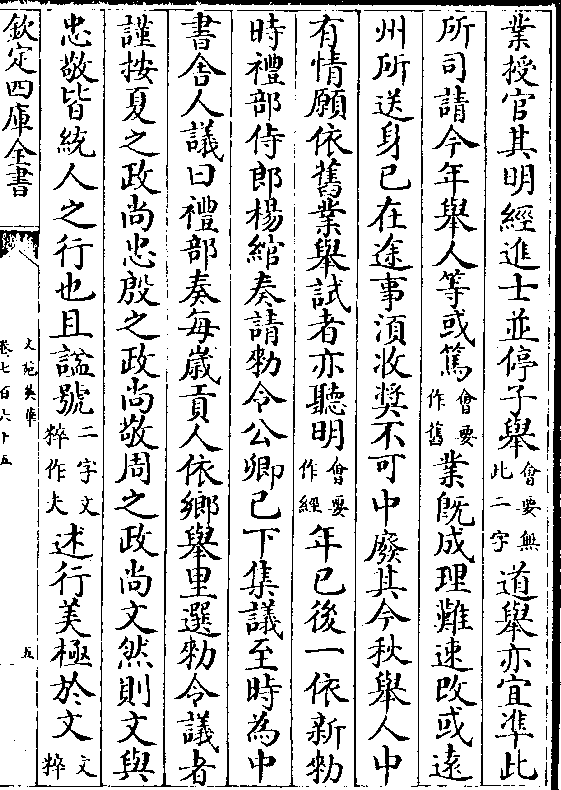 業授官其明經進士並停子舉會要無此二字道舉亦宜準此
所司請今年舉人等或篤會要作舊業既成理難速改或遠
州所送身已在途事湏收奬不可中廢其今秋舉人中
有情願依舊業舉試者亦聽明會要作經年已後一依新勑
時禮部侍郎楊綰奏請勑令公卿已下集議至時為中
書舍人議曰禮部奏每嵗貢人依鄉舉里選勑令議者
謹按夏之政尚忠殷之政尚敬周之政尚文然則文與
忠敬皆統人之行也且諡號二字文粹作夫述行美極於文文粹
欽定四庫全書
文苑英華
卷七百六十五
五